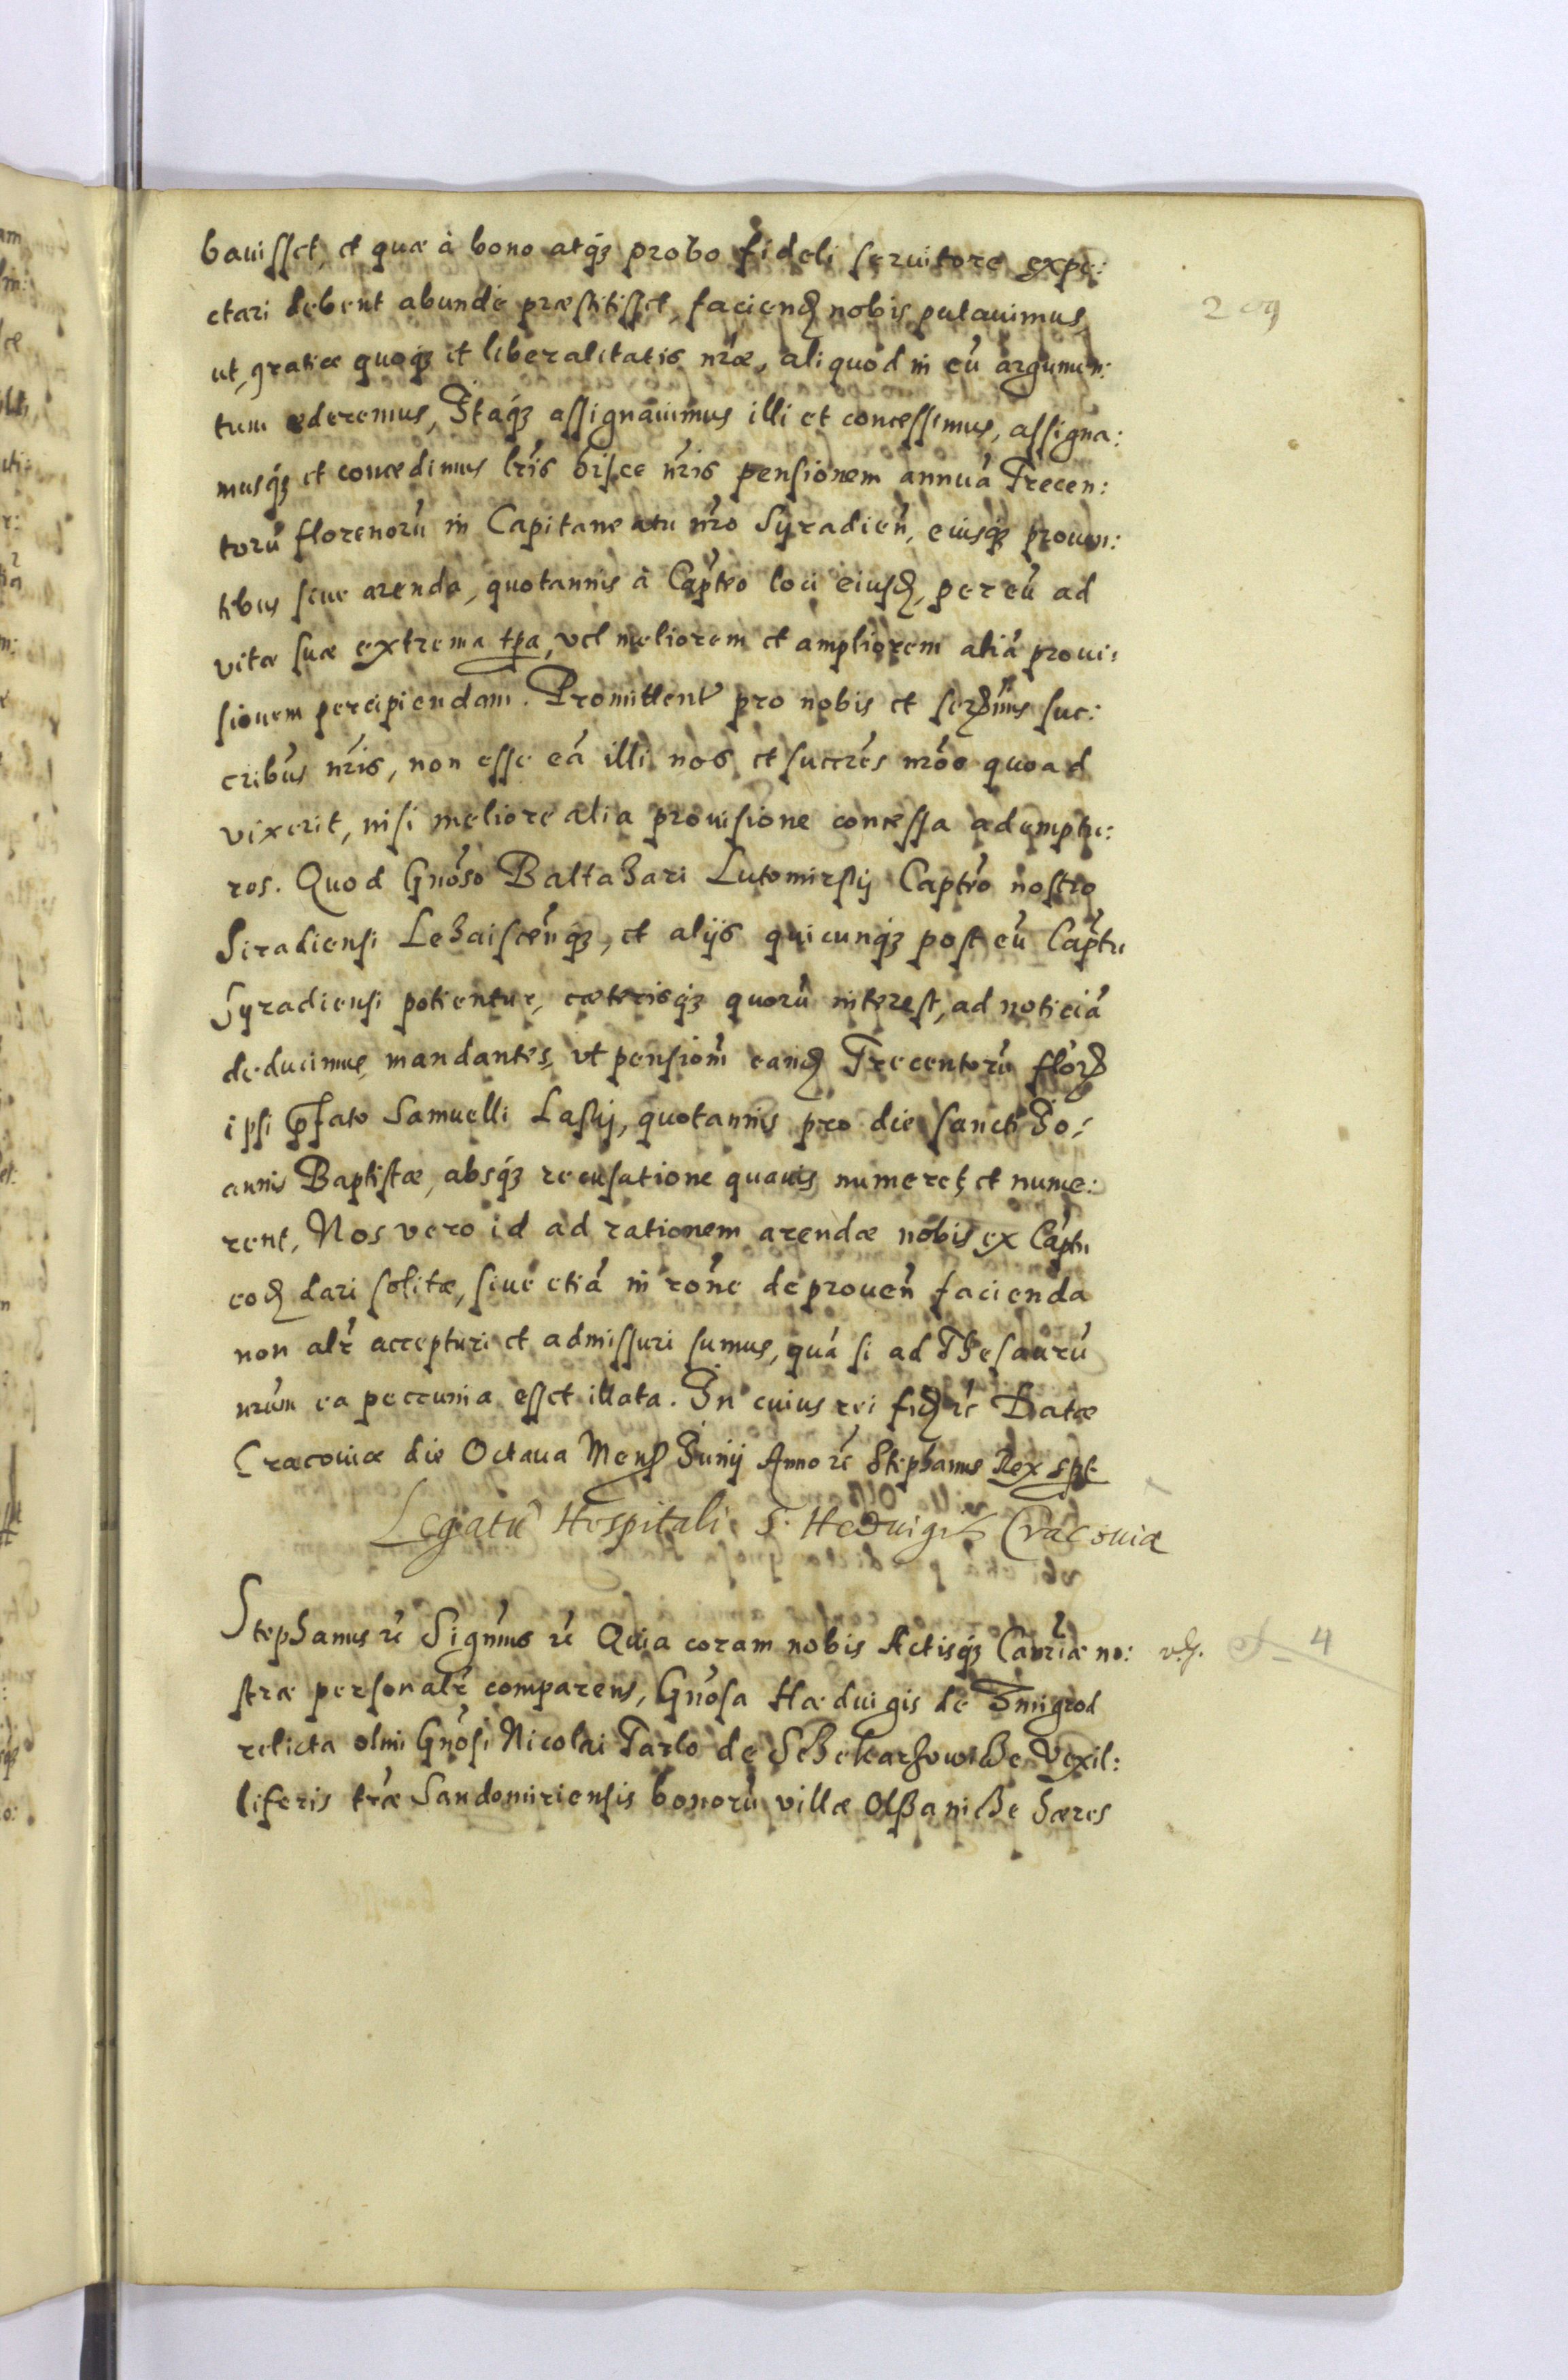 bauisset, et quæ à bono atq3 probo fideli seruitore expe:
ctari debent abundè præstitisset, faciend nobis putauimus,
ut, gratiæ quoq3 et liberalitatis nræ, aliquod in eũ argumen:
tum ederemus, Itaq3 assignauimus illi et concessimus, assigna:
musq3 et concedimus lris hisce nris pensionem annuã Trecen:
torũ florenorũ in Capitaneatu nro Syradien, eiusq3 prouen:
tibus siue arenda, quotannis à Captreo loci eiusd, per eũ ad
vitæ suæ extrema tpa, vel meliorem et ampliorem aliã proui:
sionem percipiendam. Promitten pro nobis et sermis suc:
cribus nris, non esse eã illi nos et succres nros quoad
vixerit, nisi meliore alia prouisione concessa adempturos:
ros. Quod Gnoso Baltahari Lutomirskij Captreo nostro
Siradiensi Lehaiscenq3, et alijs quicunq3 post eũ Captu
Syradiensi potientur, cæterisq3 quorũ interest, ad noticiã
deducimus, mandantes, vt pensiom eand Trecentorũ flor
ipsi pfato Samuelli Laskij, quotannis pro die sancti Io:
annis Baptistæ, absq3 recusatione quauis numeret et nume:
rent, Nos vero id ad rationem arendæ nobis ex Captu
eod dari solitæ, siue etiã in rone de prouen facienda
non alr accepturi et admissuri sumus, quã si ad Thesaurũ
nrum ea peccunia esset illata. In cuius rei fid rc Datæ
Cracouiæ die Octaua Mens Junij Anno rc Stephanus Rex spt
Legatũ Hospitali S. Heduigis Cracouiæ
Stephanus rc Signmus rc Quia coram nobis Actisq3 Canriæ no:
stræ personalr comparens, Gnosa Hæduigis de Zmigrod
relicta olmi Gnosi Nicolai Tarlo de Schekarhowicze Vexil:
liferis træ Sandomiriensis bonorũ villæ Olßanicze hæres
209
4